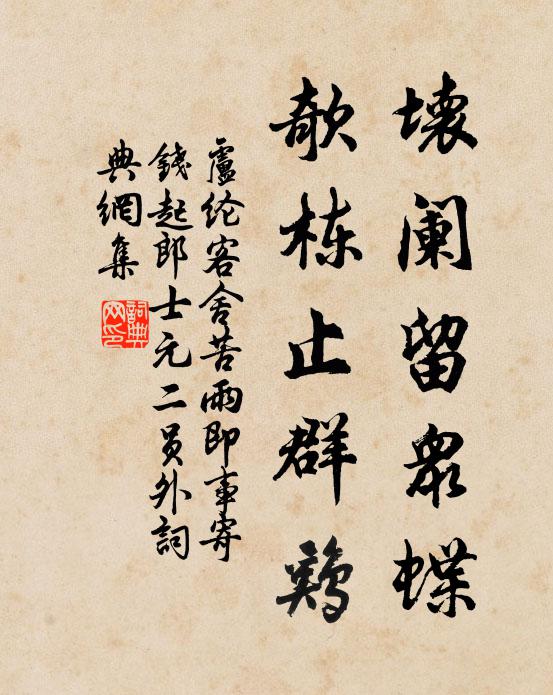 壊阑留衆蝶
欹栋止群鷄
盧纶客舍苦雨即事寄
錢起郎士元二员外詞
典網集
詞典
网印